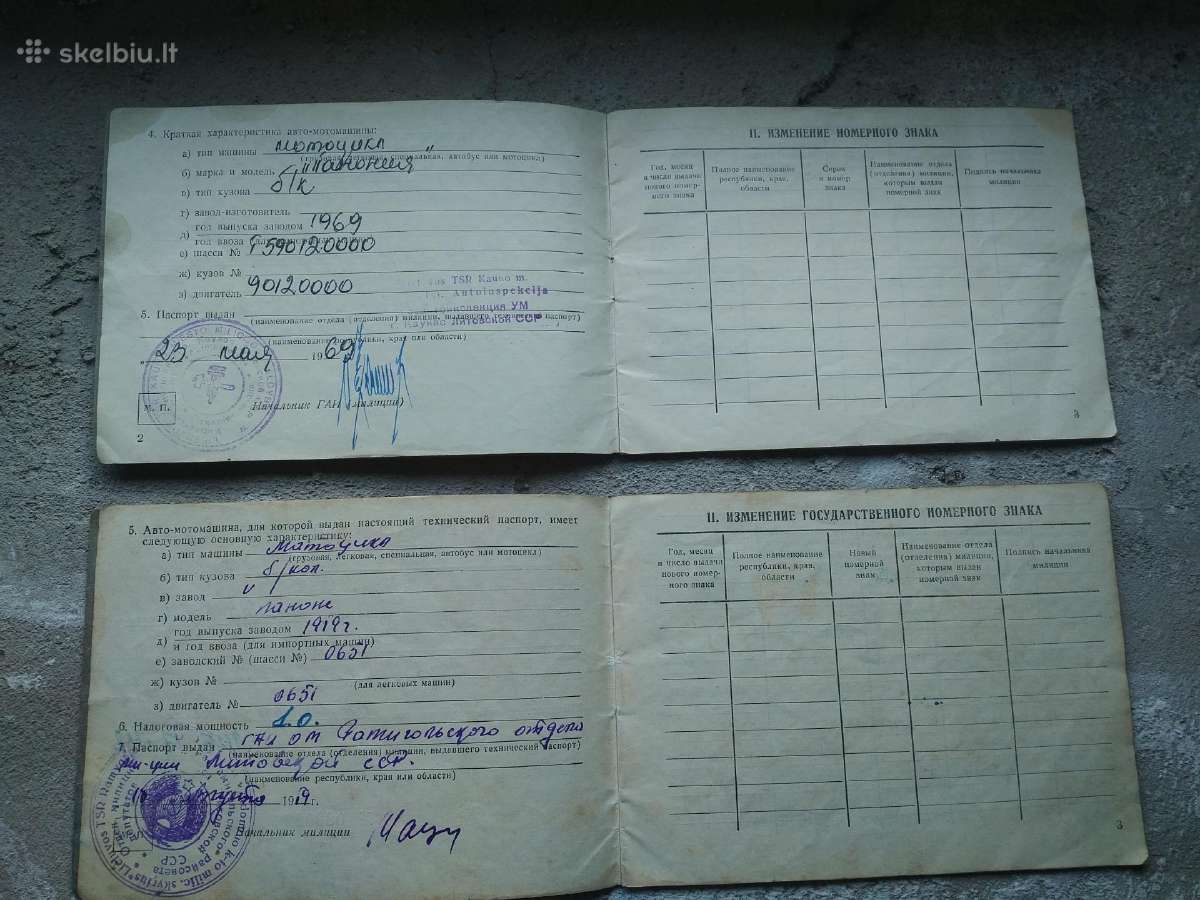 skelbiu.lt
4. Краткая характеристика авто-мотомашины:
а) тип машины мотоцикл
(грузовая, легковая, специальная, автобус или мотоцикл)
б) марка и модель „Паннония"
в) тип кузова б/к
г) завод-изготовитель
д) год выпуска заводом 1969
год ввоза
е) шасси № 590120000
ж) кузов №
з) двигатель 90120000
TSR Kauno m.
Autoinspekcija
УМ
г. Каунас Литовской ССР
5. Паспорт выдан
(наименование отдела (отделения) милиции, выдавшего технический паспорт)
(наименование республики, края или области)
23 мая 1969
М. П.
Начальник ГАИ (милиции)
2
II. ИЗМЕНЕНИЕ НОМЕРНОГО ЗНАКА
Год, месяц и число выдачи нового номерного знака
Полное наименование республики, края, области
Серия и номер знака
Наименование отдела (отделения) милиции, которым выдан номерной знак
Подпись начальника милиции
3
5. Авто-мотомашина, для которой выдан настоящий технический паспорт, имеет
следующую основную характеристику:
а) тип машины Матоцикл
(грузовая, легковая, специальная, автобус или мотоцикл)
б) тип кузова б/кол.
в) завод
г) модель
д) год выпуска заводом 1919г.
и год ввоза (для импортных машин)
е) заводский № (шасси №) 0651
ж) кузов №
(для легковых машин)
з) двигатель № 0651
6. Налоговая мощность 1.0.
7. Паспорт выдан ГАИ от отдела
(наименование отдела (отделения) милиции, выдавшего технический паспорт)
ми-ции Литовской ССР.
(наименование республики, края или области)
19 г.
Начальник милиции
Lietuvos TSR
II. ИЗМЕНЕНИЕ ГОСУДАРСТВЕННОГО НОМЕРНОГО ЗНАКА
Год, месяц и число выдачи нового номерного знака
Полное наименование республики, края, области
Новый номерной знак
Наименование отдела (отделения) милиции, которым выдан номерной знак
Подпись начальника милиции
3